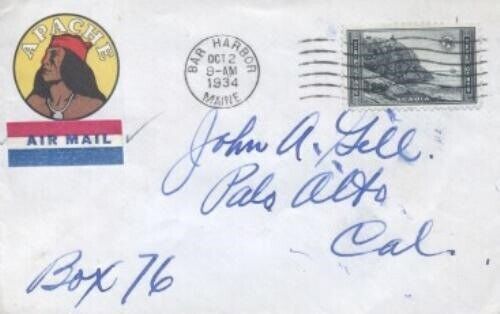 APACHE
AIR MAIL
BAR HARBOR
OCT 2
9-AM
1934
MAINE
ACADIA
John A. Gill.
Palo Alto
Cal.
Box 76